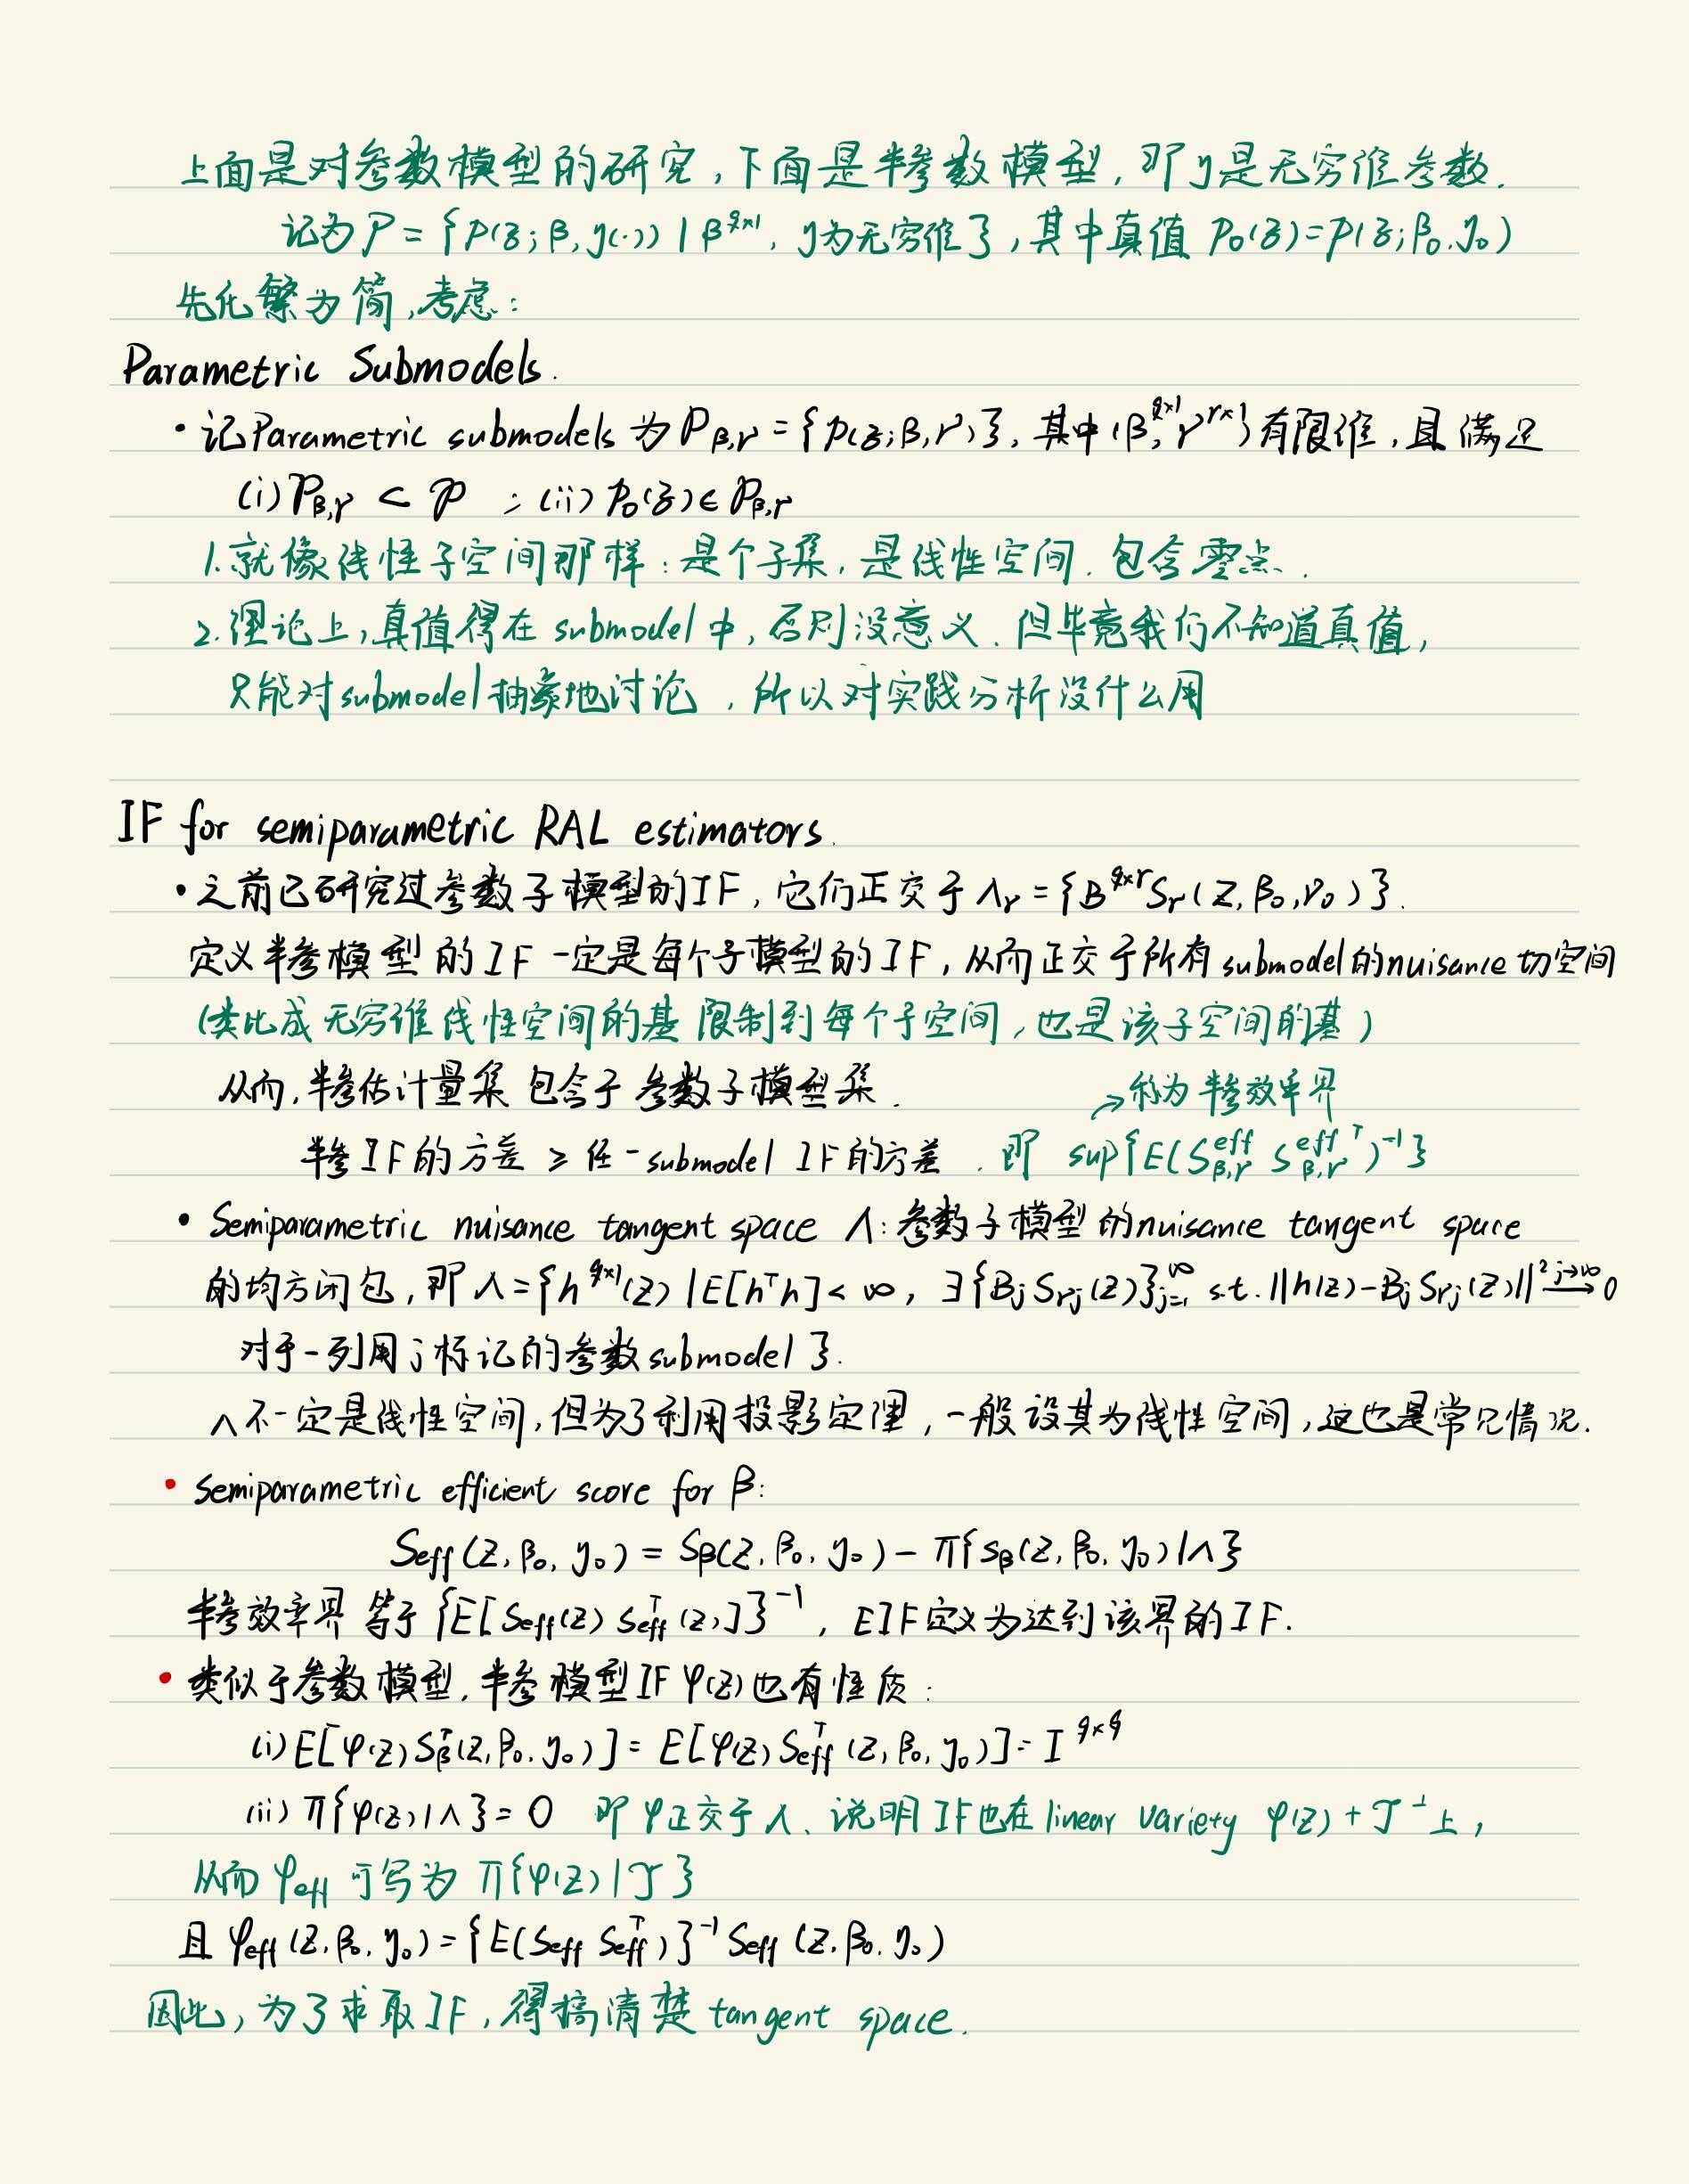 上面是对参数模型的研究,下面是半参数模型,即η是无穷维参数.
记为 P = {p(z; β, η(·)) | β^{q×1}, η为无穷维}, 其中真值 p₀(z)=p(z; β₀, η₀)
先化繁为简,考虑:
Parametric Submodels.
• 记Parametric submodels 为 P_{β,γ} = {p(z; β, γ)}, 其中(β^{q×1}, γ^{r×1})有限维, 且满足
(i) P_{β,γ} ⊂ P ; (ii) p₀(z) ∈ P_{β,γ}
1.就像线性子空间那样:是个子集,是线性空间.包含零点.
2.理论上,真值得在 submodel 中,否则没意义.但毕竟我们不知道真值,
只能对submodel抽象地讨论,所以对实践分析没什么用
IF for semiparametric RAL estimators.
• 之前已研究过参数子模型的IF,它们正交于 Λ_γ = {B^{q×r} S_γ(Z, β₀, γ₀)}.
定义半参模型的IF一定是每个子模型的IF,从而正交于所有submodel的nuisance切空间
(类比成无穷维线性空间的基限制到每个子空间,也是该子空间的基)
从而,半参估计量集包含于参数子模型集.
→称为半参效率界
半参IF的方差 ≥ 任一submodel IF的方差.即 sup{E(S^{eff}_{β,γ} S^{eff T}_{β,γ})^{-1}}
• Semiparametric nuisance tangent space Λ:参数子模型的nuisance tangent space
的均方闭包,即 Λ={h^{q×1}(Z) | E[hᵀh]<∞, ∃{B_j S_{γj}(Z)}_{j=1}^∞ s.t. ||h(Z)-B_j S_{γj}(Z)||² \xrightarrow{j→∞} 0
对于一列用j标记的参数submodel}.
Λ不一定是线性空间,但为了利用投影定理,一般设其为线性空间,这也是常见情况.
• Semiparametric efficient score for β:
S_{eff}(Z, β₀, η₀) = S_β(Z, β₀, η₀) - π{S_β(Z, β₀, η₀)|Λ}
半参效率界等于 {E[S_{eff}(Z) S_{eff}^T(Z)]}^{-1}, EIF定义为达到该界的IF.
• 类似于参数模型,半参模型IF φ(Z)也有性质:
(i) E[φ(Z) S_β^T(Z, β₀, η₀)] = E[φ(Z) S_{eff}^T(Z, β₀, η₀)] = I^{q×q}
(ii) π{φ(Z)|Λ} = 0 即φ正交于Λ、说明IF也在linear variety φ(Z) + 𝒯^⊥ 上,
从而 φ_{eff} 可写为 π{φ(Z)|𝒯}
且 φ_{eff}(Z, β₀, η₀) = {E(S_{eff} S_{eff}^T)}^{-1} S_{eff}(Z, β₀, η₀)
因此,为了求取IF,得搞清楚 tangent space.